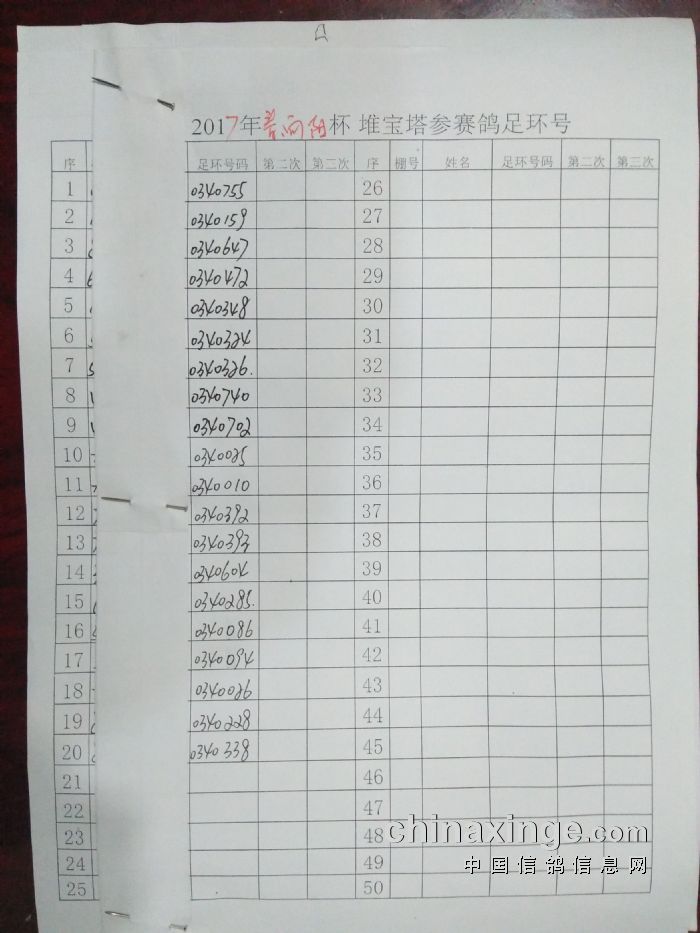 2017年普向阳杯 堆宝塔参赛鸽足环号
序 足环号码 第二次 第三次 序 棚号 姓名 足环号码 第二次 第三次
1 0340755 26
2 0340159 27
3 0340647 28
4 0340472 29
5 0340348 30
6 0340324 31
7 0340326. 32
8 0340740 33
9 0340702 34
10 0340025 35
11 0340010 36
12 0340392 37
13 0340393 38
14 0340604 39
15 0340285. 40
16 0340086 41
17 0340094 42
18 0340026 43
19 0340228 44
20 0340338 45
21 46
22 47
23 48
24 49
25 50
chinaxinge.com
中国信鸽信息网